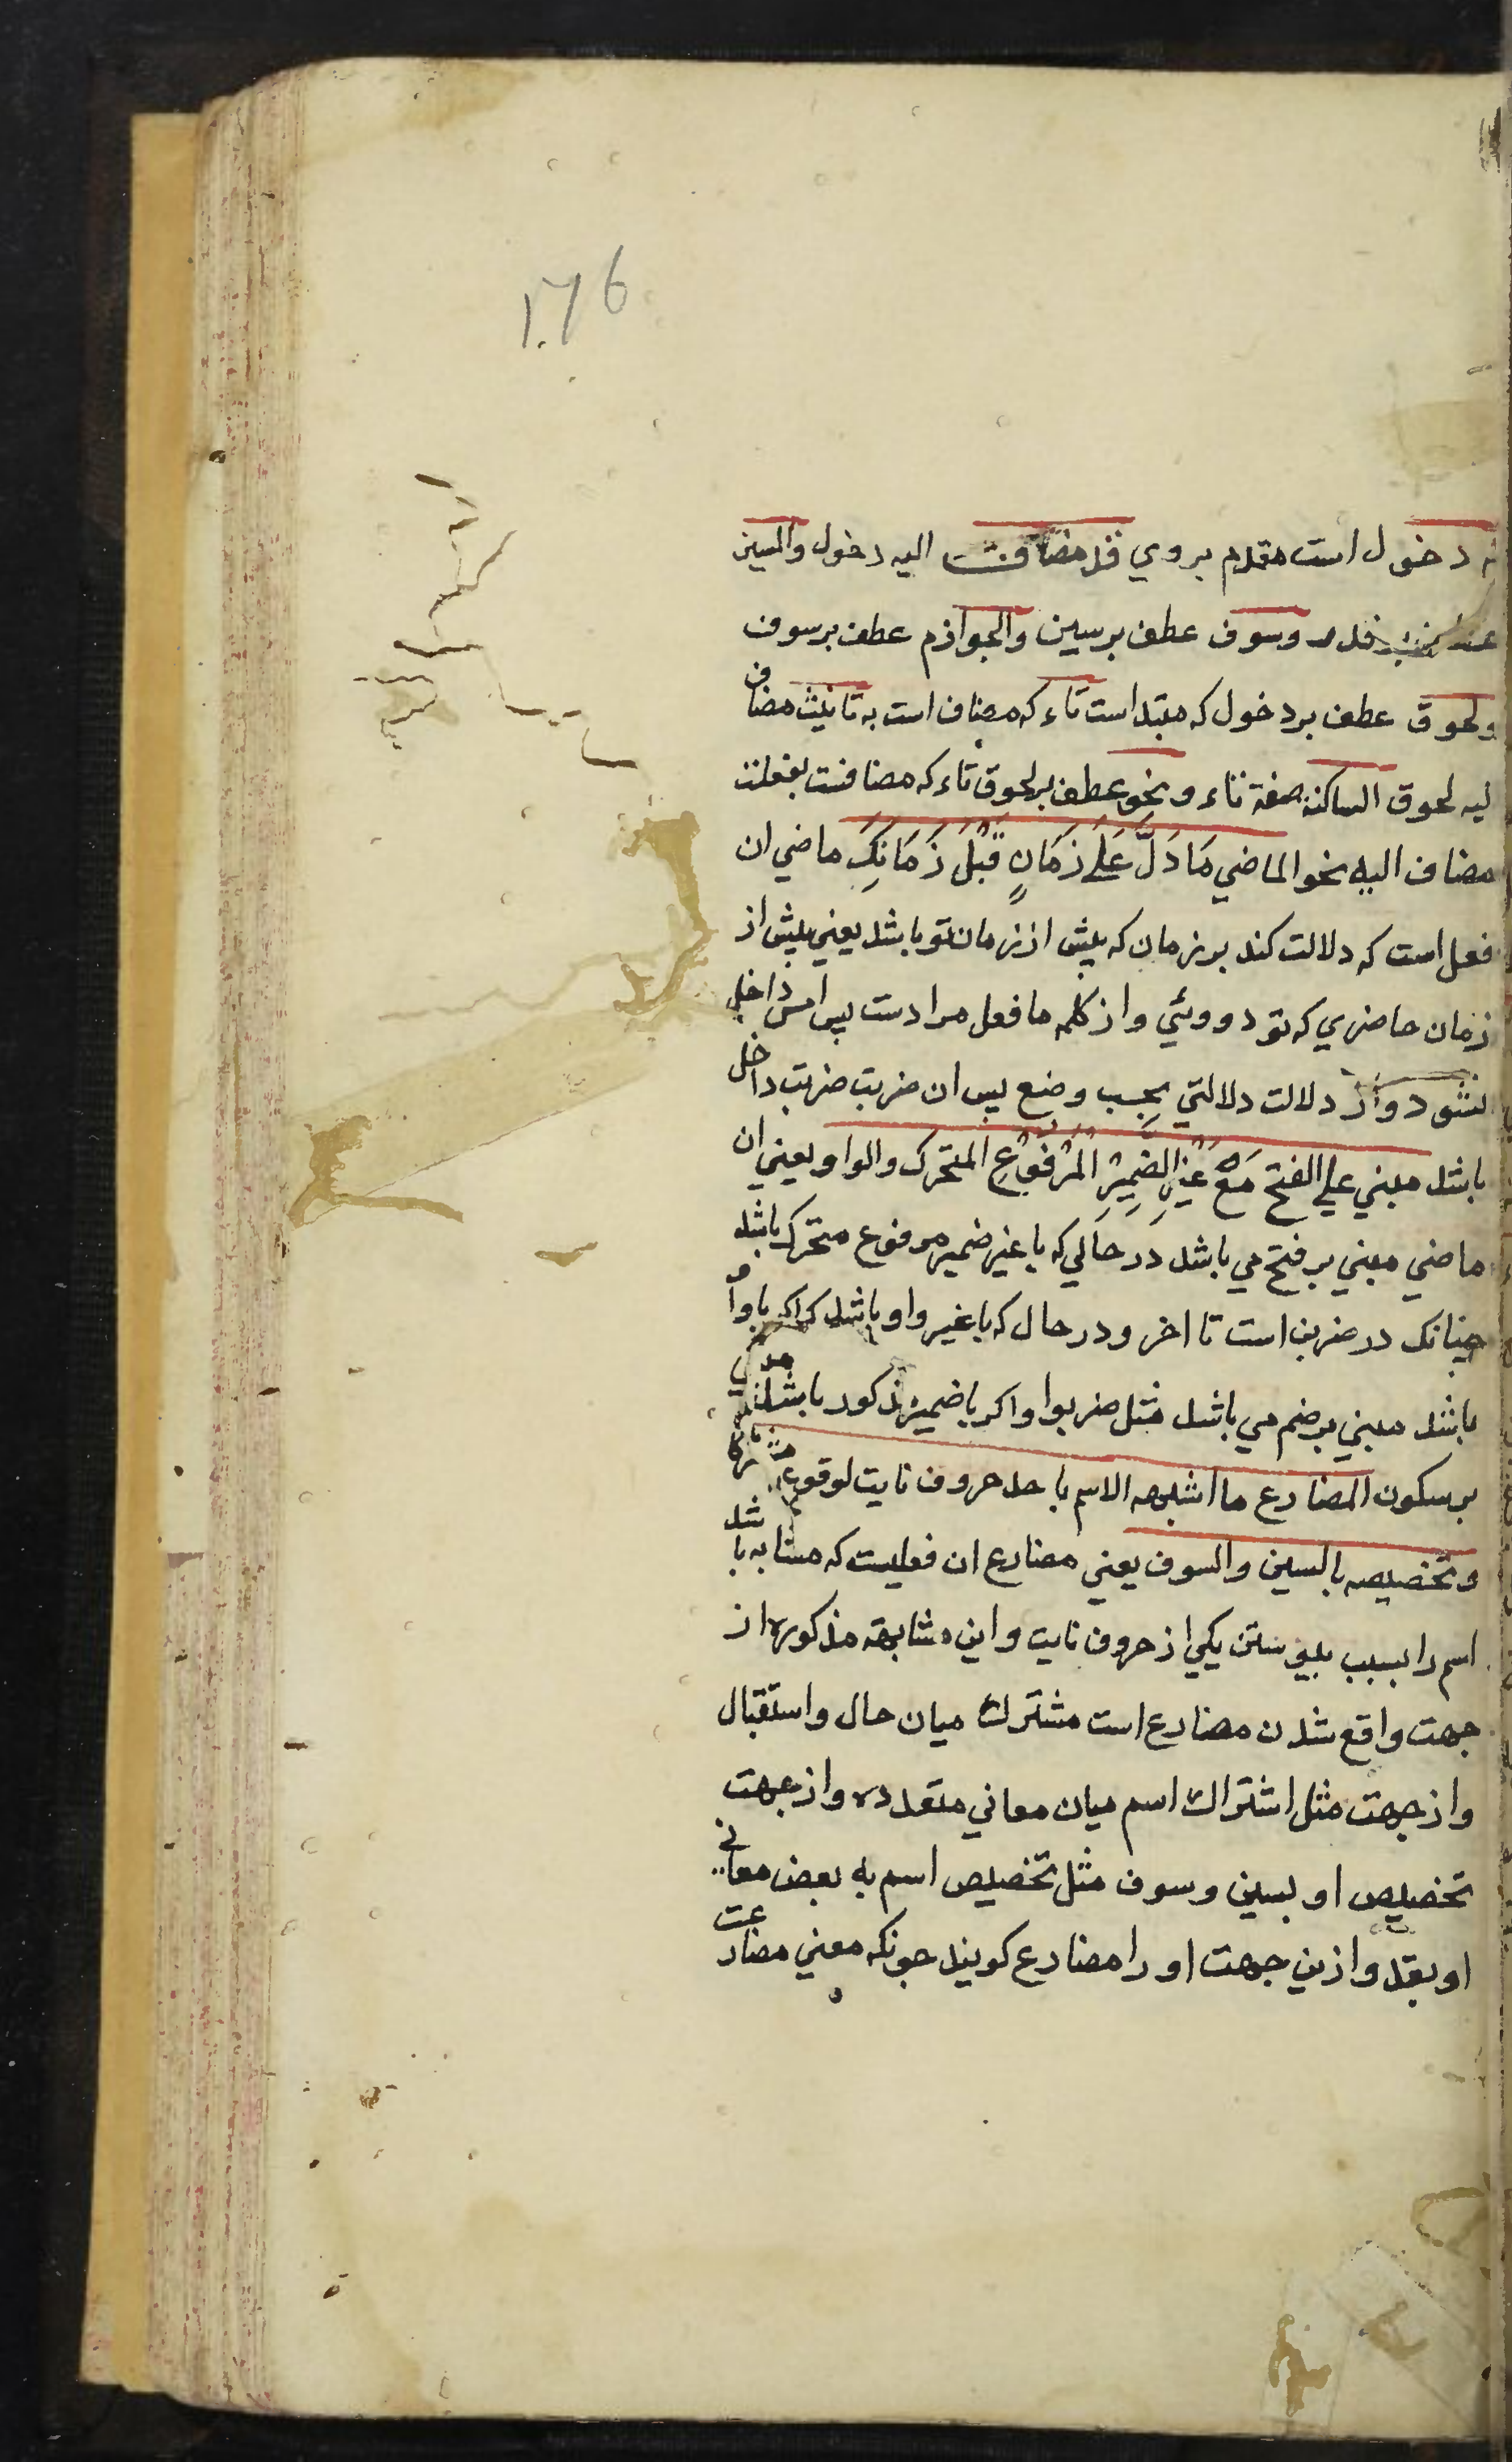 176
دخول است مقدم بروي قد مضافست اليه دخول والسين
وسوف عطف برسين والجوازم عطف برسوف
ولحوق عطف بر دخول كه مبتداست تاء كه مضاف است به تانيث مضاف
ليه لحوق الساكنة صفة تاء و نحو عطف بر لحوق تاء كه مضافست بفعلت
مضاف اليه نحو الماضي مَا دَلَّ عَلَى زَمَانٍ قَبْلَ زَمَانِكَ ماضي ان
فعل است كه دلالت كند بر زمان كه پيش از زمان تو باشد يعني پيش از
زمان حاضري كه تو دروئي واز كلمه ما فعل مرادست پس امس داخل
نشود واز دلالت دلالتي بحسب وضع پس ان ضربت ضربت داخل
باشد مبني علي الفتح مَعَ غَيْرِ الضَّمِيْرِ الْمَرْفُوْعِ المتحرك والواو يعني ان
ماضي مبني بر فتح مي باشد در حالي كه با غير ضمير مرفوع متحرك باشد
چنانك در ضربن است تا اخر ودر حال كه با غير واو باشد كه اكر با واو
باشد مبني بر ضم مي باشد مثل ضربوا واكر با ضمير مذكور باشد
بر سكون المضارع ما اشبه الاسم باحد حروف نايت لوقوعه مشتركا
وتخصيصه بالسين والسوف يعني مضارع ان فعليست كه مشابه باشد
اسم را بسبب پيوستن يكي از حروف نايت واين مشابهة مذكوره از
جهت واقع شدن مضارع است مشترك ميان حال واستقبال
واز جهت مثل اشتراك اسم ميان معاني متعدده واز جهت
تخصيص او بسين وسوف مثل تخصيص اسم به بعض معاني
او بقد وازين جهت او را مضارع كويند چونكه معني مضارعت